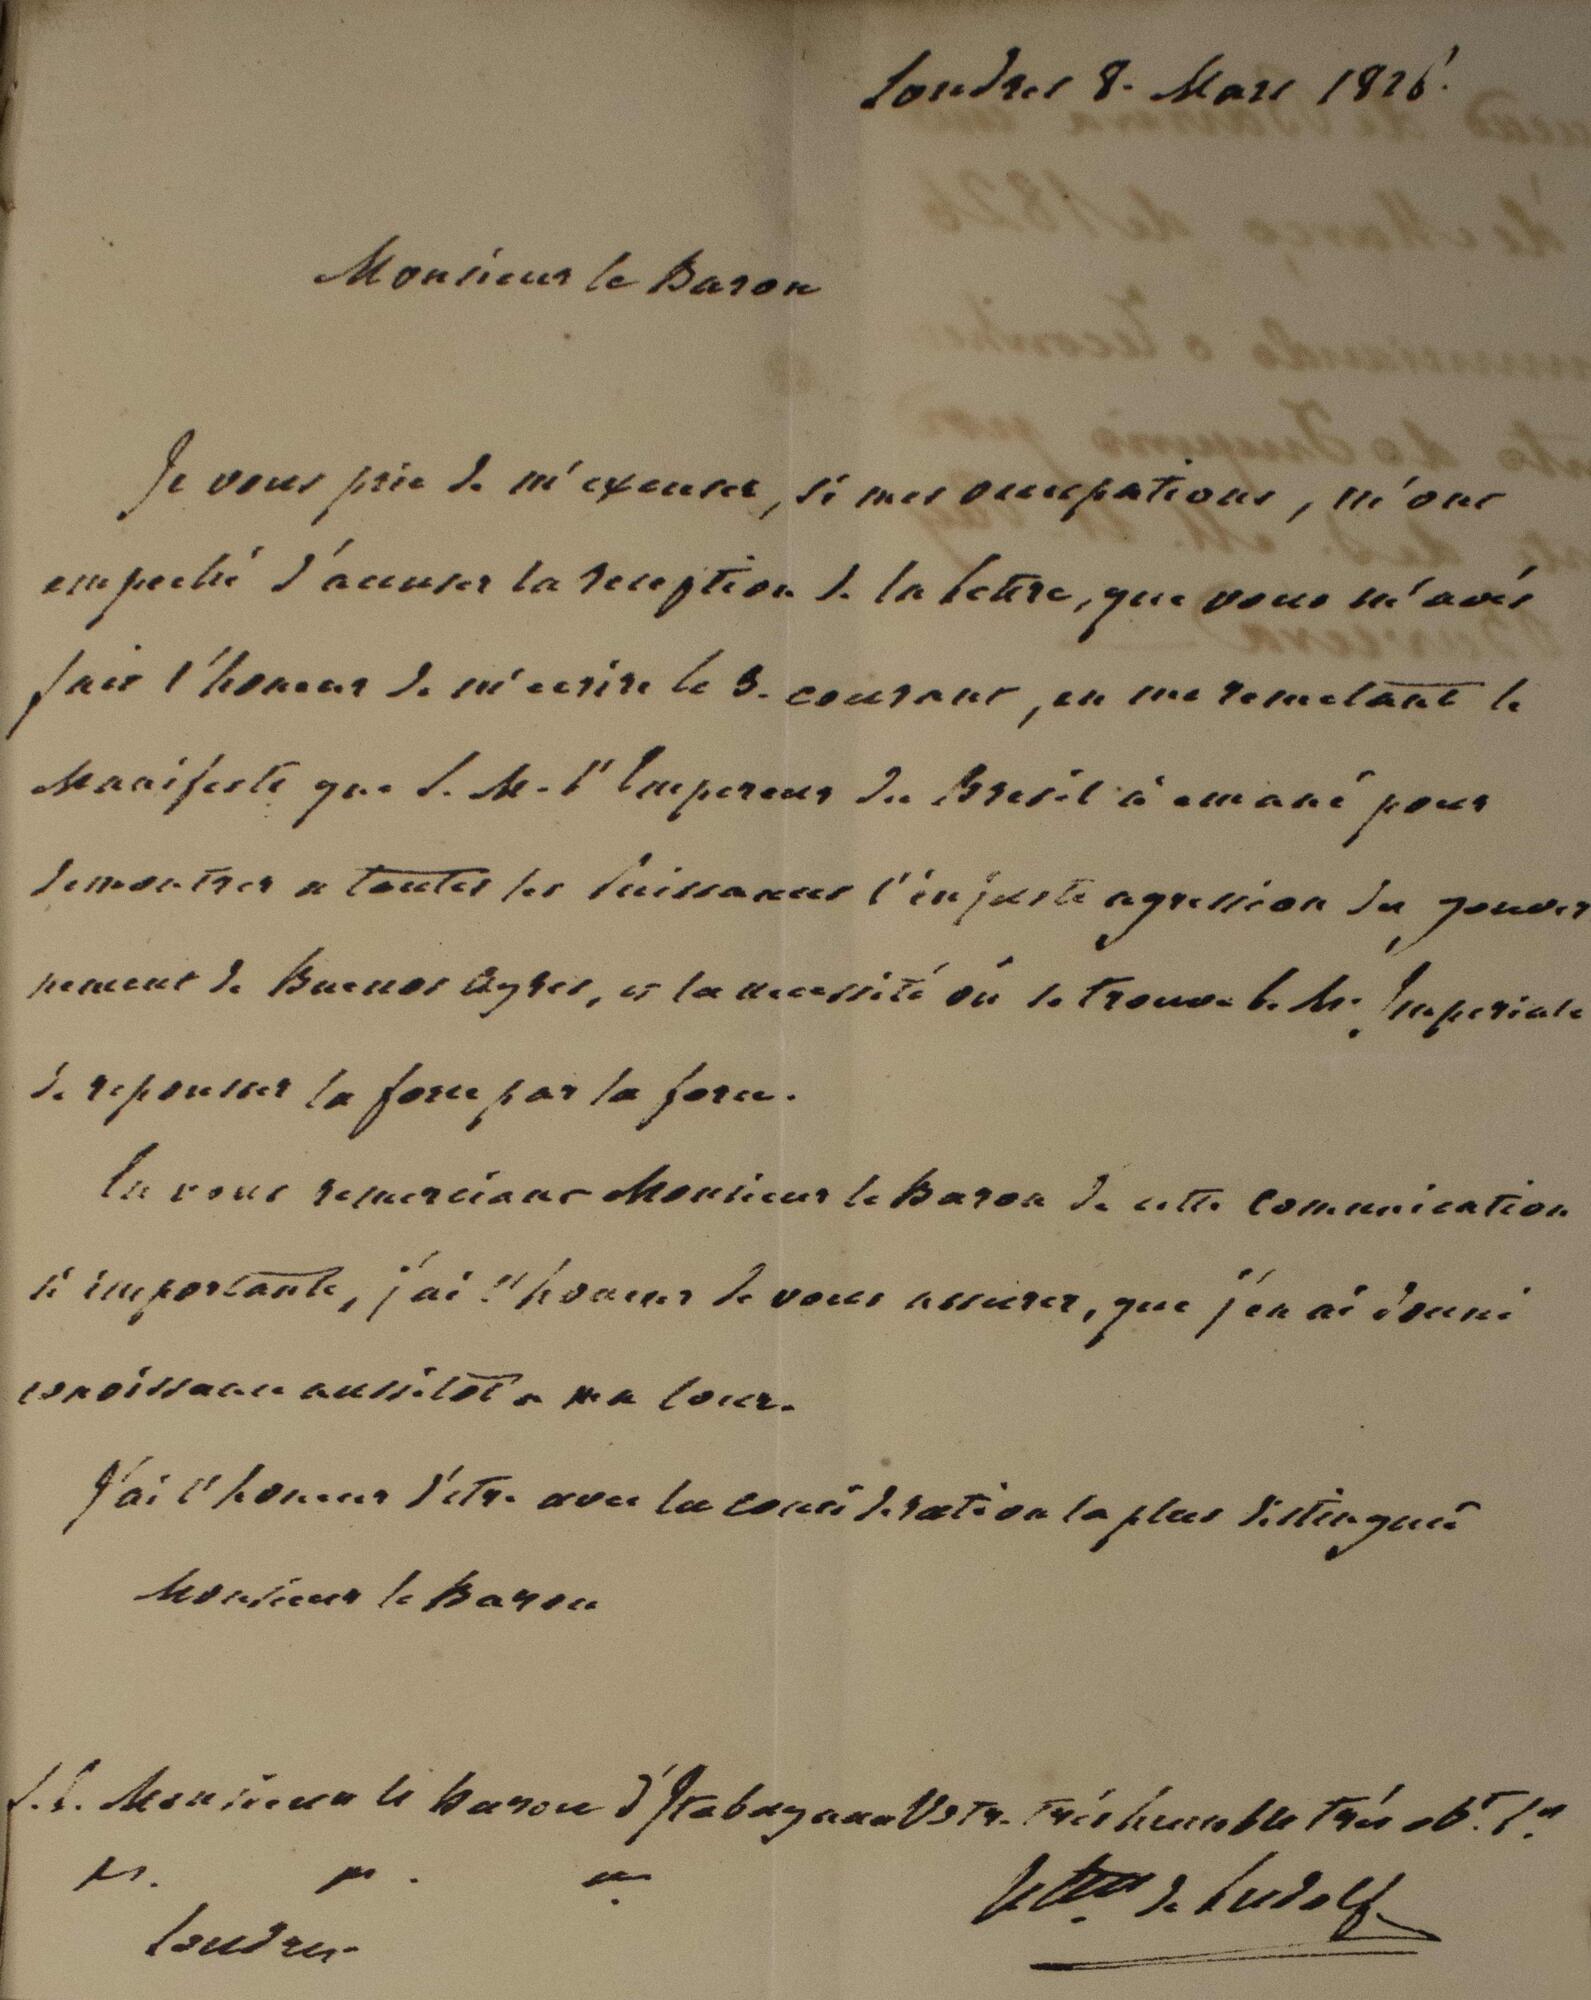 Londres 8. Mars 1826.
Monsieur le Baron
Je vous prie de m'excuser, si mes occupations, m'ont
empeché d'accuser la reception de la lettre, que vous m'avés
fait l'honeur de m'ecrire le 3. courant, en me remetant le
Manifeste que S. M. l'Empereur du Bresil à emané pour
demontrer a toutes les Puissances l'injuste agression du gouver
nement de Buenos Ayres, et la necessité où se trouve S. M. Imperiale
de repousser la force par la force.
En vous remerciant Monsieur le Baron de cette comunication
si importante, j'ai l'honeur de vous assurer, que j'en ai donné
conoissance aussitôt a ma Cour.
J'ai l'honeur d'etre avec la consideration la plus distinguée
Monsieur le Baron
S. E. Monsieur le Baron d'Itabayana Votre très humble très obt. Sr.
Londres
de Ludolf